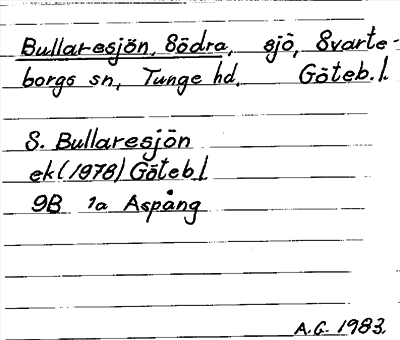 Bullaresjön, Södra, sjö, Svarte-
borgs sn, Tunge hd. Göteb. l.
S. Bullaresjön
ek (1978) Göteb l
9B 1a Aspång
A.G. 1983.